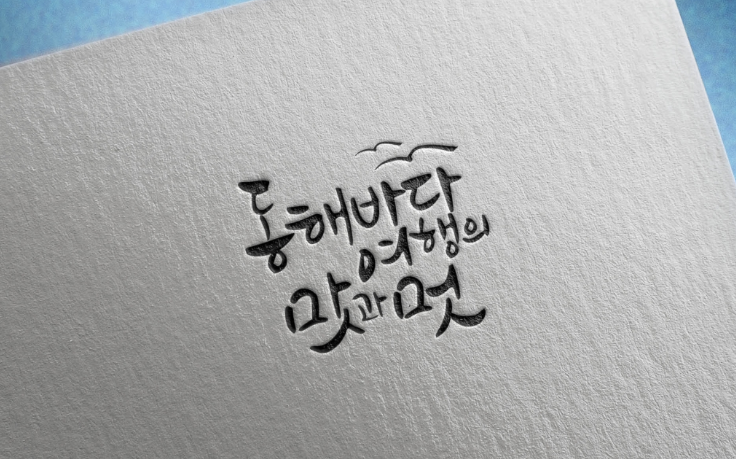 동해바다
여행의
맛과 멋